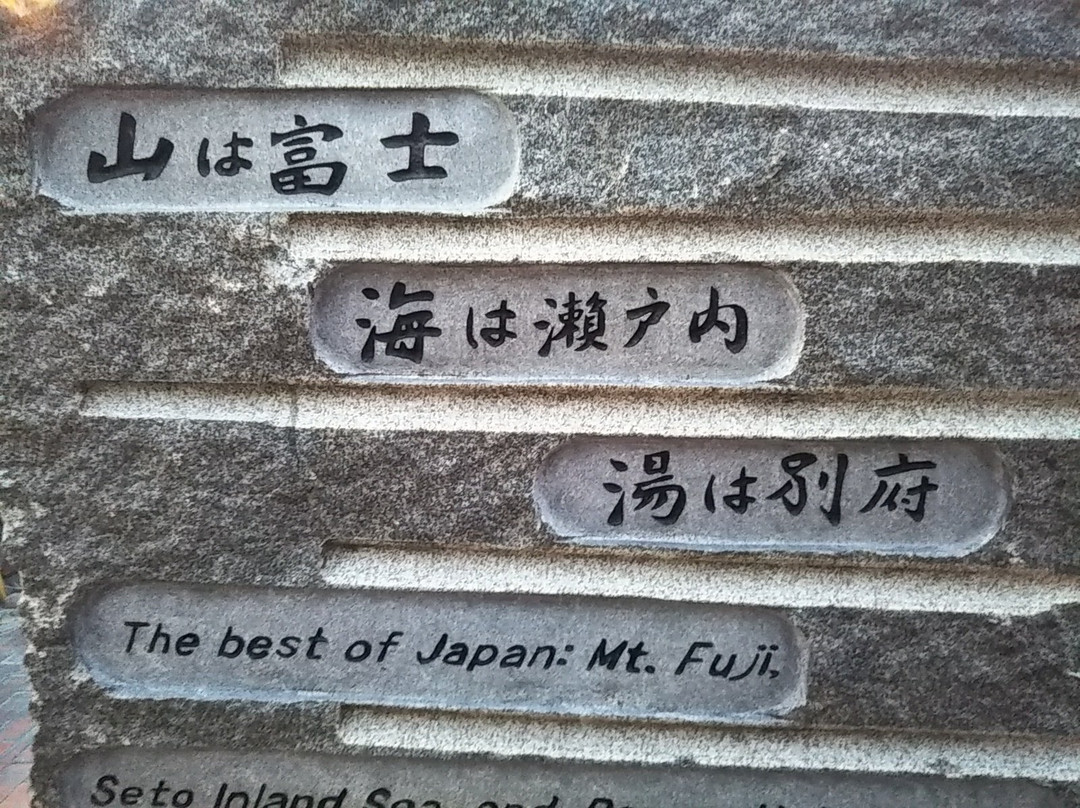 山は富士
海は瀬戸内
湯は別府
The best of Japan: Mt. Fuji,
Seto Inland Sea, and